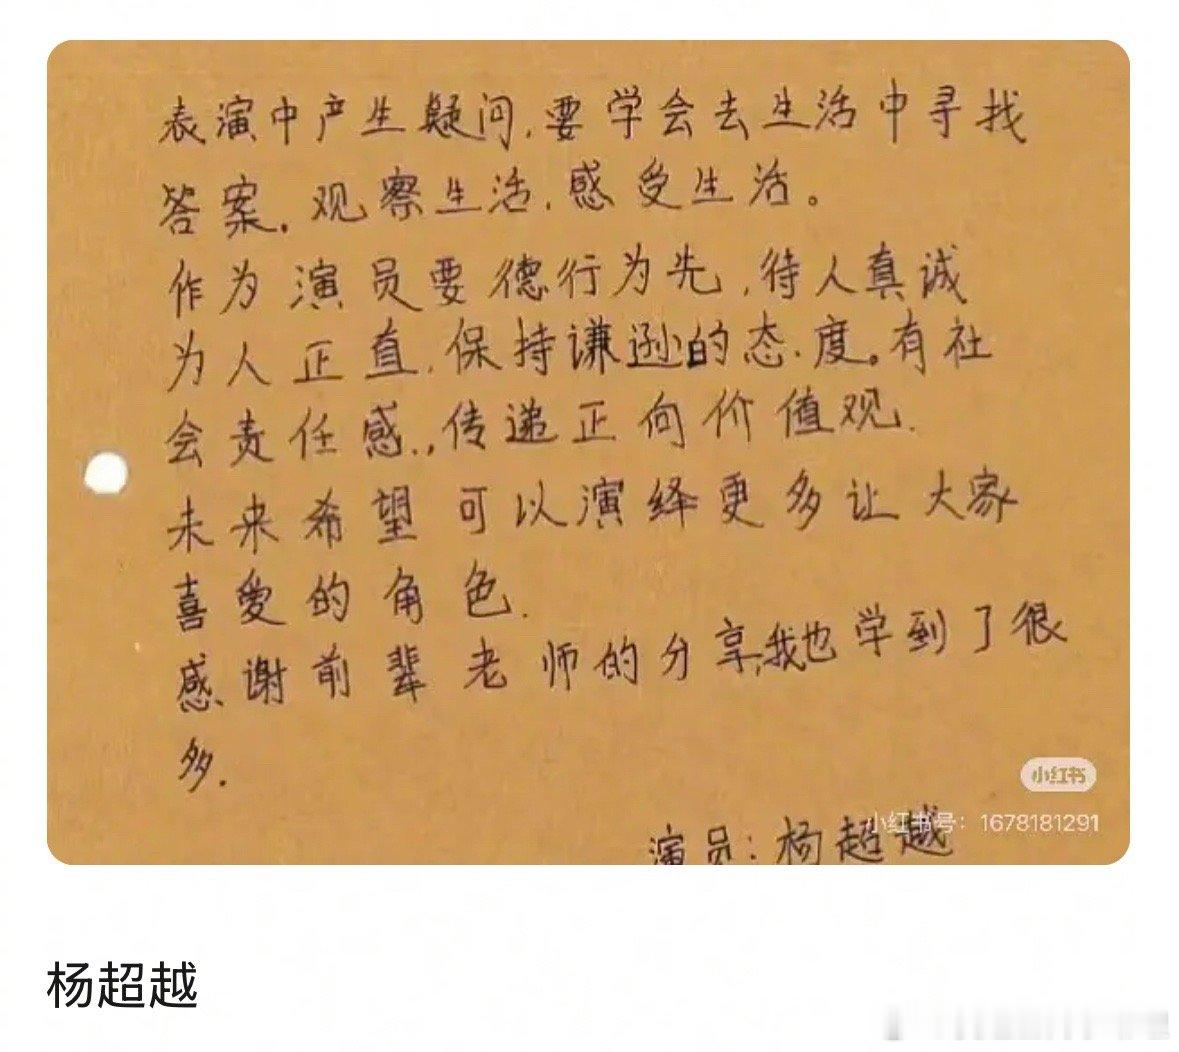 表演中产生疑问,要学会去生活中寻找
答案。观察生活,感受生活。
作为演员要德行为先,待人真诚
为人正直,保持谦逊的态度。有社
会责任感.,传递正向价值观.
未来希望可以演绎更多让大家
喜爱的角色.
感谢前辈老师的分享,我也学到了很
多.
小红书
小红书号:1678181291
演员:杨超越
杨超越